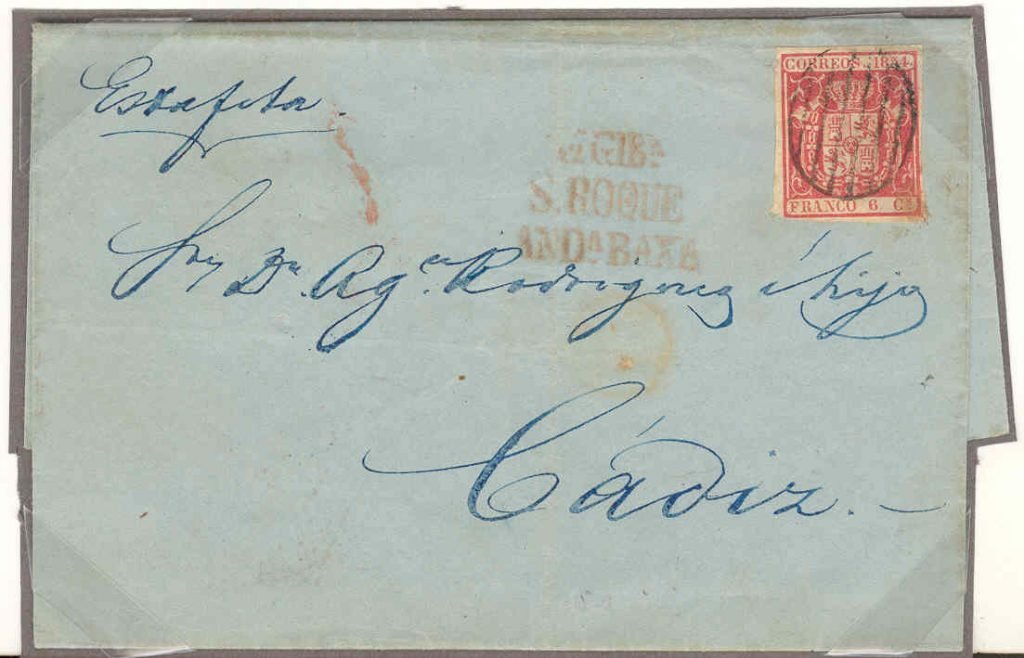 Estafeta.
CORREOS 1854.
FRANCO 6 Cs
GIBª
S. ROQUE
ANDª BAXA
Sor Dn. Agn. Rodriguez é hijo
Cádiz.